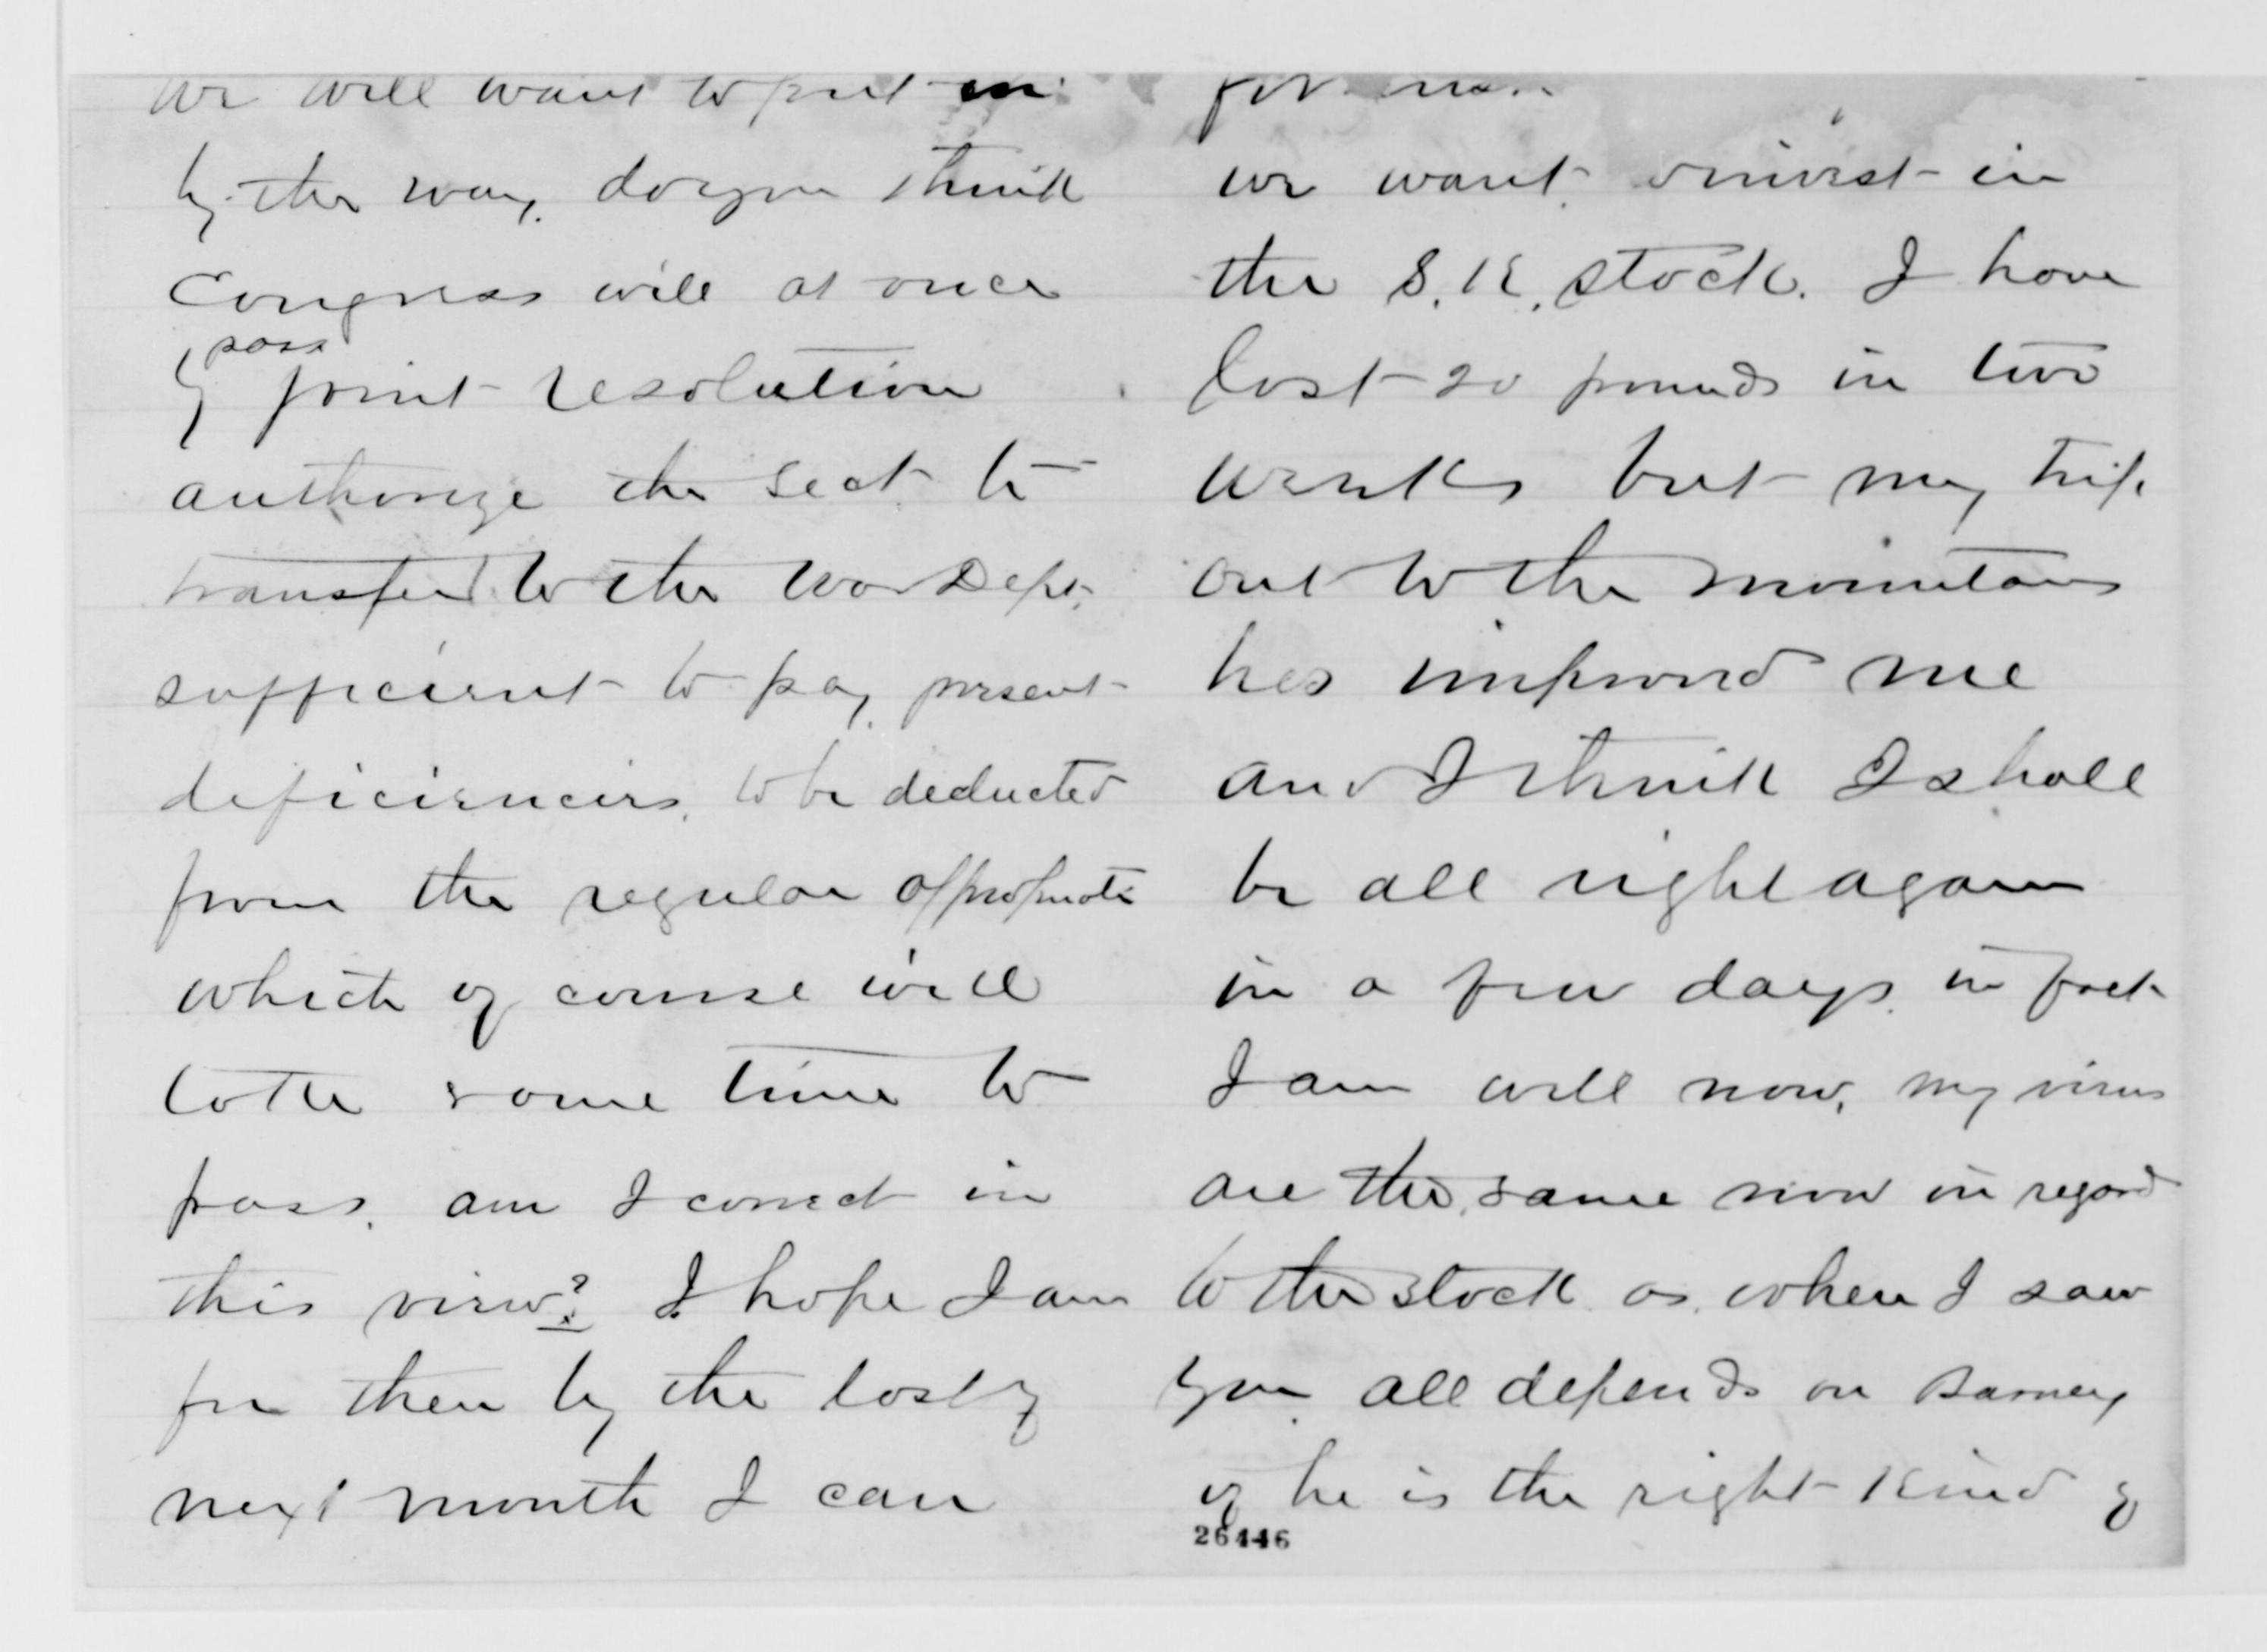 we will want to put in
by the way, do you think
Congress will at once
pass
by joint resolution
authorize the Sect to
transfer to the War Dept.
sufficient to pay present
deficiencies, to be deducted
from the regular appropriati
which of course will
take some time to
pass. am I correct in
this view? I hope I am
for then by the last of
next month I can
for
we want invest in
the S. K. stock. I have
lost 20 pounds in two
weeks but my trip
out to the mountains
has improved me
and I think I shall
be all right again
in a few days. in fact
I am well now, my views
are the same now in regard
to the stock as when I saw
you all depends on Barney
if he is the right kind of
26446